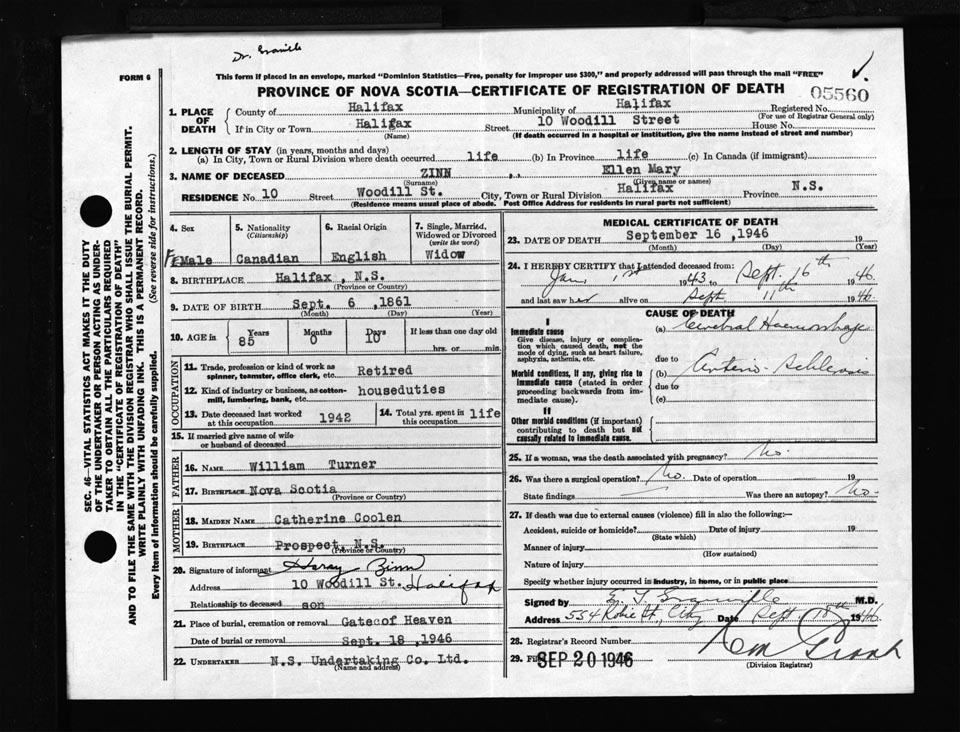 Dr. Granville
FORM 6
This form if placed in an envelope, marked "Dominion Statistics—Free, penalty for improper use $300," and properly addressed will pass through the mail "FREE"
PROVINCE OF NOVA SCOTIA—CERTIFICATE OF REGISTRATION OF DEATH
05560
SEC. 46—VITAL STATISTICS ACT MAKES IT THE DUTY
OF THE UNDERTAKER OR PERSON ACTING AS UNDER-
TAKER TO OBTAIN ALL THE PARTICULARS REQUIRED
IN THE "CERTIFICATE OF REGISTRATION OF DEATH"
AND TO FILE THE SAME WITH THE DIVISION REGISTRAR WHO SHALL ISSUE THE BURIAL PERMIT.
WRITE PLAINLY WITH UNFADING INK. THIS IS A PERMANENT RECORD.
Every item of information should be carefully supplied. (See reverse side for instructions.)
1. PLACE OF DEATH
County of Halifax Municipality of Halifax Registered No.
(For use of Registrar General only)
If in City or Town Halifax Street 10 Woodill Street House No.
(Name) (If death occurred in a hospital or institution, give the name instead of street and number)
2. LENGTH OF STAY (in years, months and days)
(a) In City, Town or Rural Division where death occurred life (b) In Province life (c) In Canada (if immigrant)
3. NAME OF DECEASED ZINN , , Ellen Mary
(Surname) (Given name or names)
RESIDENCE No. 10 Street Woodill St. City, Town or Rural Division Halifax Province N.S.
(Residence means usual place of abode. Post Office Address for residents in rural parts not sufficient)
4. Sex 5. Nationality 6. Racial Origin 7. Single, Married,
(Citizenship) Widowed or Divorced
(write the word)
FeMale Canadian English Widow
8. BIRTHPLACE Halifax, N.S.
(Province or Country)
9. DATE OF BIRTH Sept. 6 , 1861
(Month) (Day) (Year)
10. AGE in Years Months Days If less than one day old
85 0 10 hrs. or min.
OCCUPATION
11. Trade, profession or kind of work as
spinner, teamster, office clerk, etc. Retired
12. Kind of industry or business, as cotton-
mill, lumbering, bank, etc. houseduties
13. Date deceased last worked
at this occupation 1942
14. Total yrs. spent in
this occupation life
15. If married give name of wife
or husband of deceased
FATHER
16. NAME William Turner
17. BIRTHPLACE Nova Scotia
(Province or Country)
MOTHER
18. MAIDEN NAME Catherine Coolen
19. BIRTHPLACE Prospect, N.S.
(Province or Country)
20. Signature of informant Harry Zinn
Address 10 Woodill St. Halifax
Relationship to deceased son
21. Place of burial, cremation or removal Gate of Heaven
Date of burial or removal Sept. 18, 1946
22. UNDERTAKER N.S. Undertaking Co. Ltd.
(Name and address)
MEDICAL CERTIFICATE OF DEATH
23. DATE OF DEATH September 16 , 1946 19
(Month) (Day) (Year)
24. I HEREBY CERTIFY that I attended deceased from:
Jan 1st 1943 to Sept. 16th 1946
and last saw her alive on Sept. 11th 1946
CAUSE OF DEATH
I
Immediate cause
Give disease, injury or complica-
tion which caused death, not the
mode of dying, such as heart failure,
asphyxia, asthenia, etc.
(a) Cerebral Haemorrhage
due to
Morbid conditions, if any, giving rise to
immediate cause (stated in order
proceeding backwards from im-
mediate cause).
(b) Arterio-Schlerosis
due to
(c)
II
Other morbid conditions (if important)
contributing to death but not
causally related to immediate cause.
25. If a woman, was the death associated with pregnancy? No.
26. Was there a surgical operation? No. Date of operation 19
State findings Was there an autopsy? No.
27. If death was due to external causes (violence) fill in also the following:—
Accident, suicide or homicide? Date of injury 19
(State which)
Manner of injury
(How sustained)
Nature of injury
Specify whether injury occurred in industry, in home, or in public place
Signed by E. T. Granville M.D.
Address 554 Robie St., City Date Sept 1946
28. Registrar's Record Number
29. SEP 20 1946
(Division Registrar)